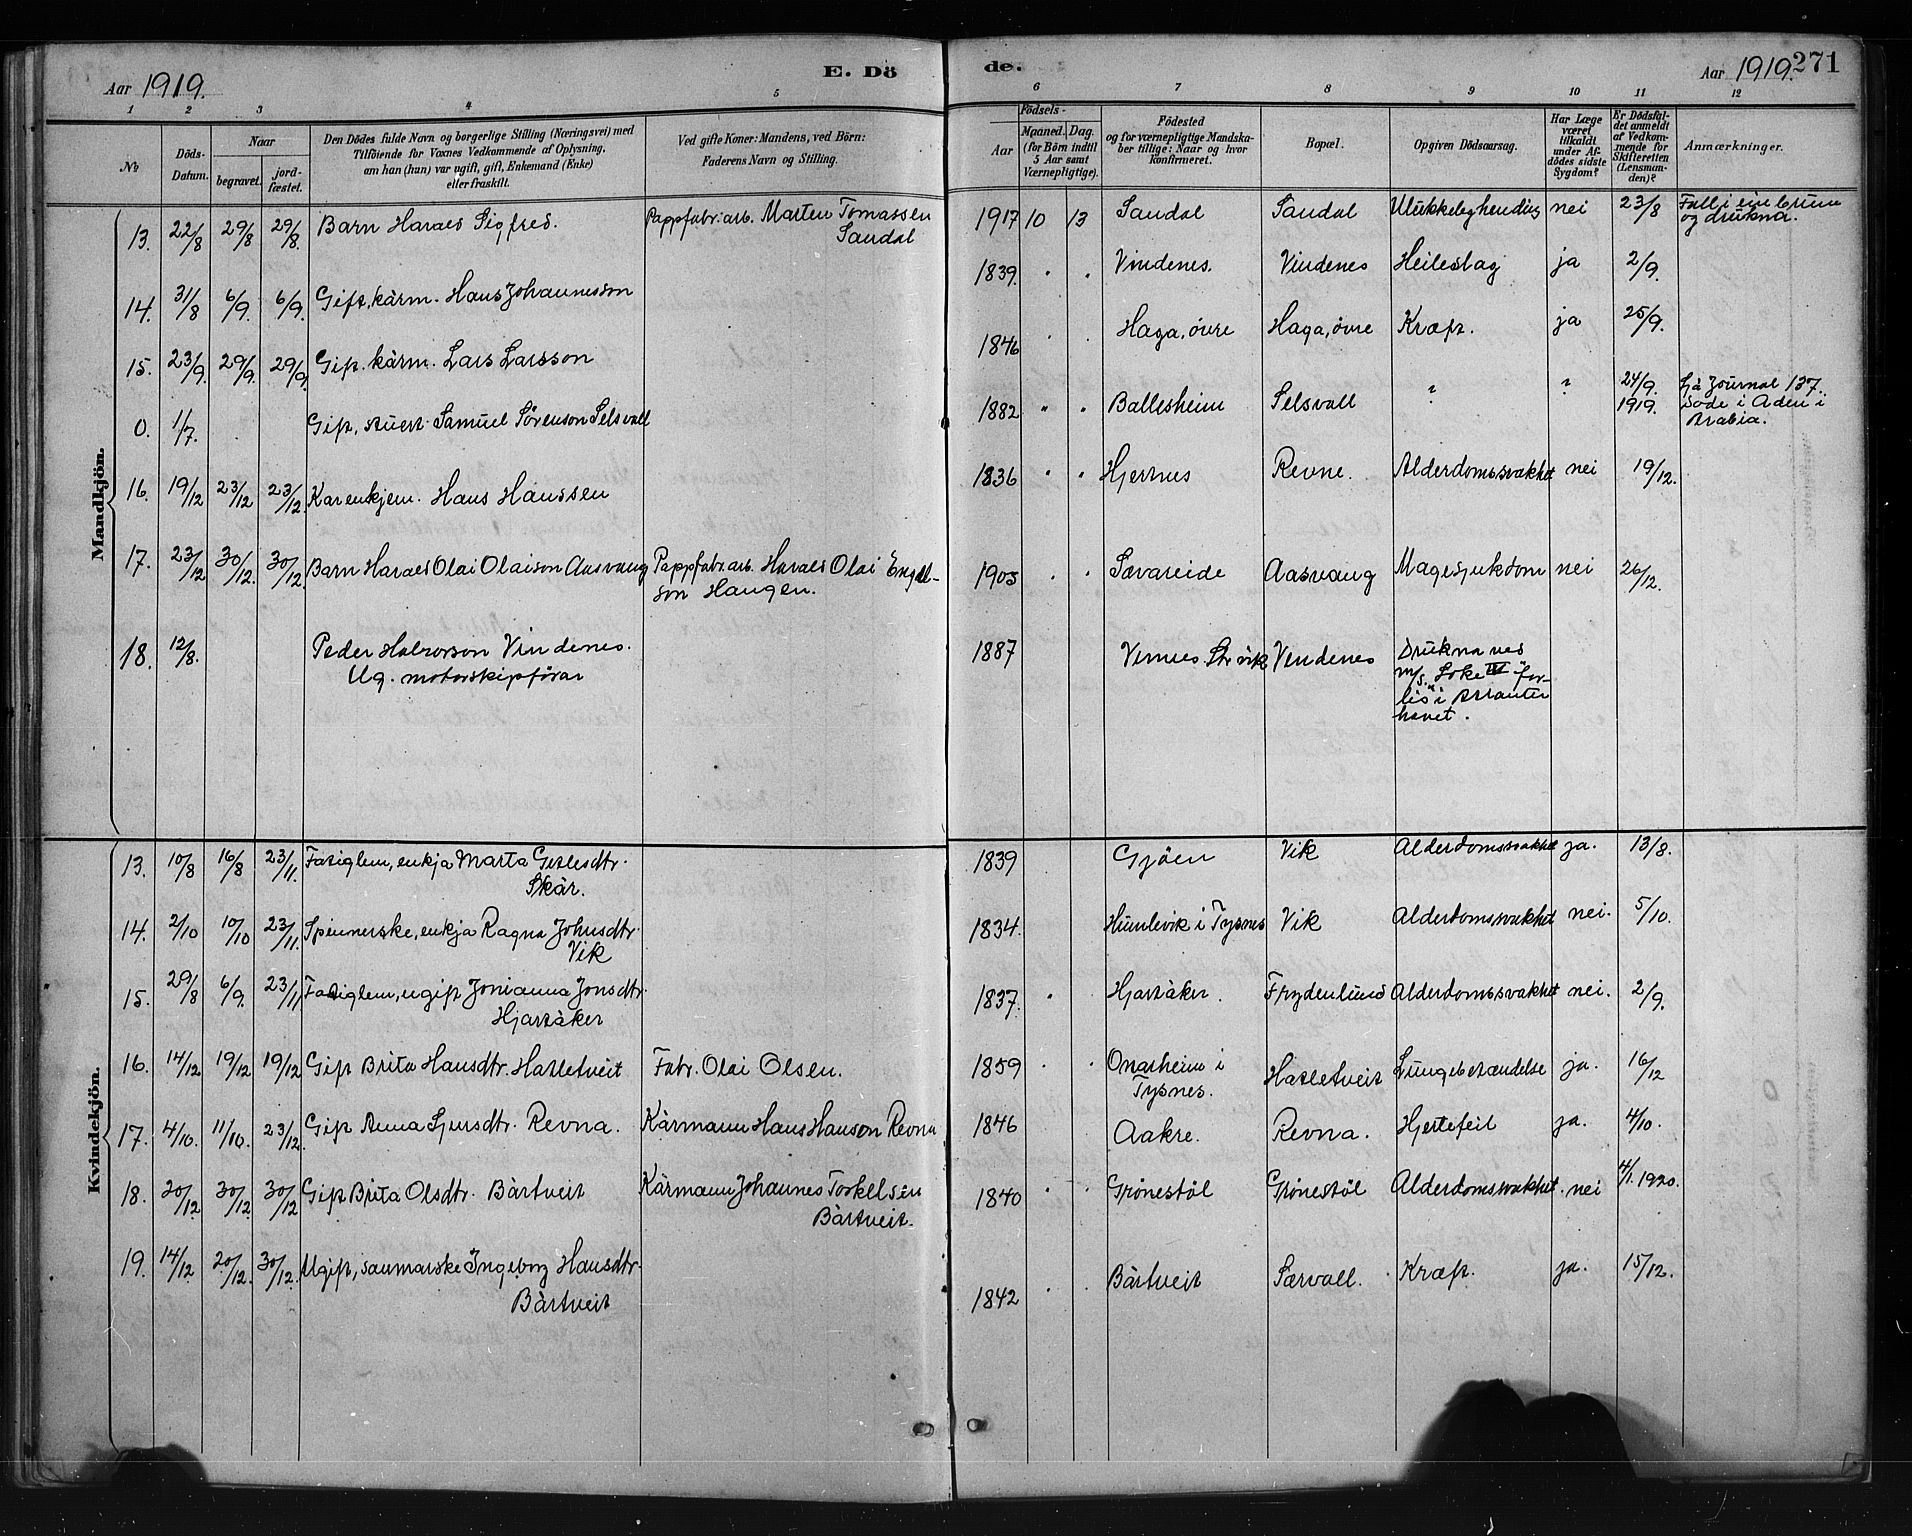 Aar 1919. E. Dö de. Aar 1919. 271
1 2 3 4 5 6 7 8 9 10 11 12
No Döds-Datum. Naar begravet. jordfæstet. Den Dödes fulde Navn og borgerlige Stilling (Næringsvei) med
Tilföiende for Voxnes Vedkommende af Oplysning,
om han (hun) var ugift, gift, Enkemand (Enke)
eller fraskilt.
Ved gifte Koner: Mandens, ved Börn:
Faderens Navn og Stilling.
Födsels-
Aar Maaned. Dag.
(for Börn indtil
5 Aar samt
Værnepligtige).
Födested
og for værnepligtige Mandska-
ber tillige: Naar og hvor
Konfirmeret.
Bopæl.
Opgiven Dödsaarsag.
Har Læge
været
tilkaldt
under Af-
dödes sidste
Sygdom?
Er Dödsfal-
det anmeldt
af Vedkom-
mende for
Skifteretten
(Lensman-
den)?
Anmærkninger.
Mandkjön.
13. 22/8 29/8 29/8. Barn Harald Sigfred. Pappfabr. arb. Marten Tomassen 1917 10 13 Sandal Sandal Ulukkeleg hending nei 23/8 Fall i ein brunn
Sandal og drukna.
14. 31/8 6/9. 6/9. Gift, kårm. Hans Johannesson 1839. Vindenes. Vindenes Heileslag ja 2/9.
15. 23/9. 29/9. 29/9. Gift. kårm. Lars Larsson 1846 Haga, övre Haga, övre Kræft. ja 25/9.
0. 1/7. Gift, stuert Samuel Sörenson Selsvoll 1882 Ballesheim Selsvoll ? ? 24/9. 1919. Sjå Journal 137.
Döde i Aden i
Arabia.
16. 19/12 23/12 23/12. Kårenkjem. Hans Hanssen 1836 Hjernes Revne. Alderdomssvakhet nei 19/12.
17. 23/12 30/12. 30/12. Barn Harald Olai Olaison Aasvang Pappfabr. arb. Harald Olai Engel-
son Haugen. 1905 Sævareide Aasvang Magesjukdom nei 26/12.
18. 12/8. Peder Halvorson Vindenes. 1887 Vindenes Drukna ved
Ug. motorskipförar m/s. "Loke IV" for-
lis i Atlanter
havet.
Kvindekjön.
13. 10/8 16/8 23/11. Fatiglem, enkja Marta Getlesdtr. 1839 Gjöen Vik Alderdomssvakhet ja. 13/8.
Skår.
14. 2/10 10/10 23/11. Spinnerske, enkja Ragna Johnsdtr. 1834. Humlevik i Tysnes Vik Alderdomssvakhet nei. 5/10.
Vik
15. 29/8 6/9. 23/11 Fatiglem, ugift Jonianna Jonsdtr. 1837. Hjartåker. Frydenlund Alderdomssvakhet nei. 2/9.
Hjartåker
16. 14/12 19/12 19/12 Gift Brita Hansdtr. Hatletveit Fabr. Olai Olsen. 1859 Onarheim i
Tysnes. Hatletveit Lungebetændelse ja. 16/12
17. 4/10. 11/10. 23/12. Gift Anna Sjursdtr. Revna. Kårmann Hans Hanson Revna 1846 Aakre. Revna. Hjertefeil ja. 4/10.
18. 20/12 30/12. 30/12 Gift Brita Olsdtr. Bårtveit Kårmann Johannes Torkelsen 1840 Grönestöl Grönestöl Alderdomssvakhet. nei 4/1. 1920.
Bårtveit.
19. 14/12 20/12. 30/12. Ugift, saumarske Ingeborg Hansdtr. 1842 Bårtveit Særvoll. Kræft. ja. 15/12.
Bårtveit